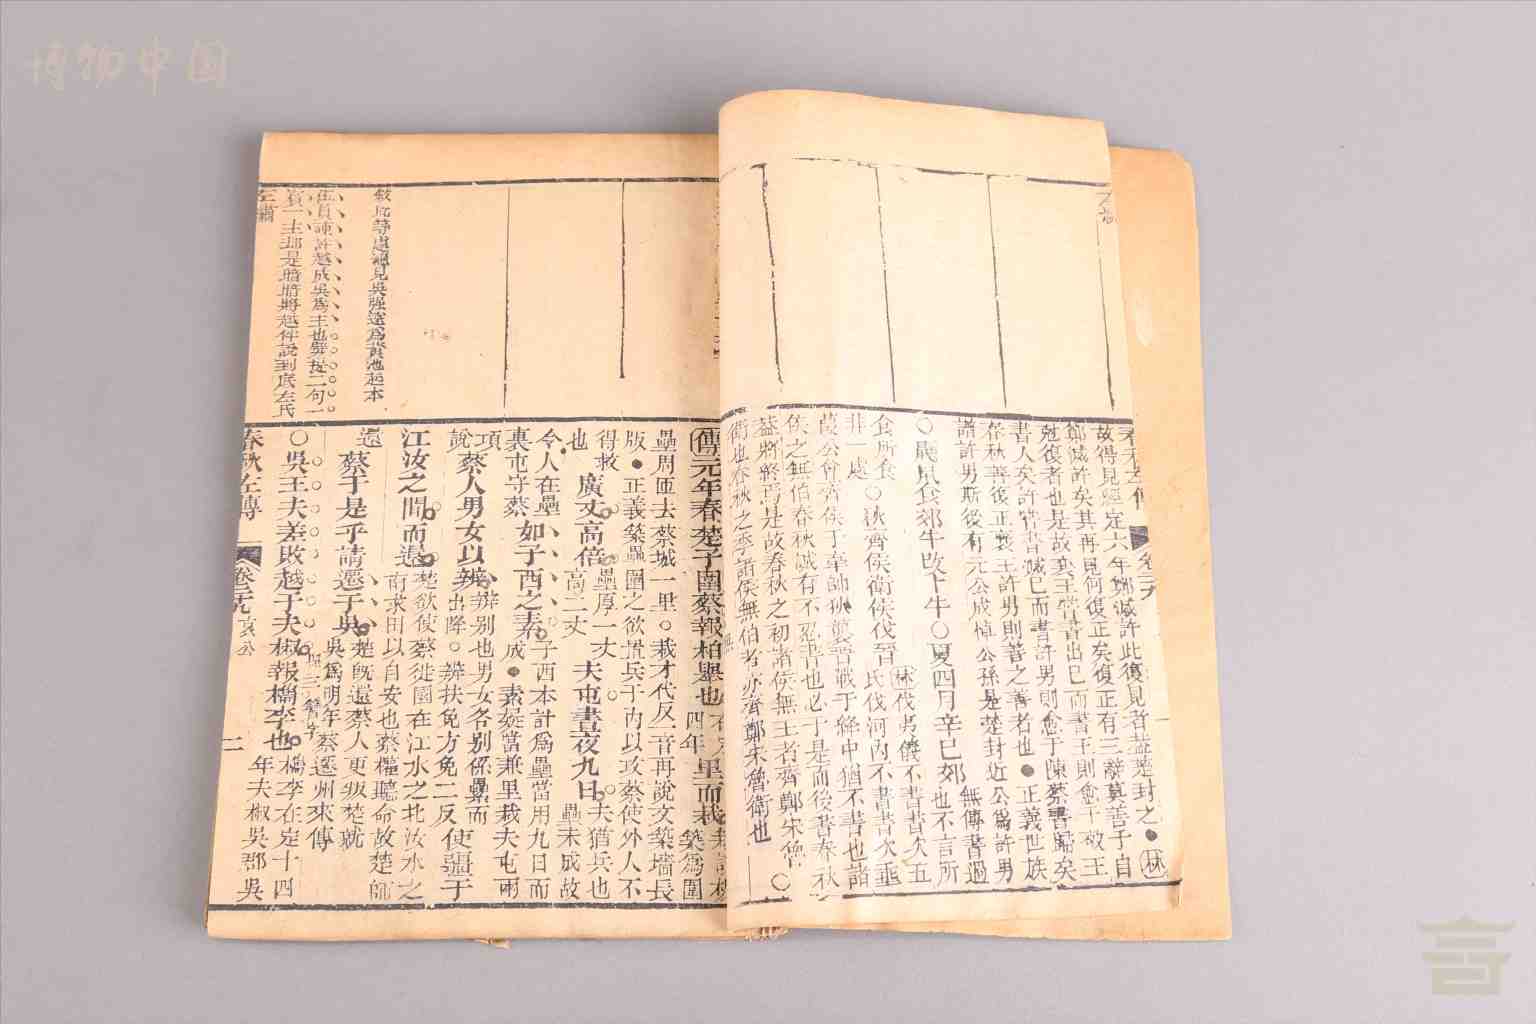 博物中国
故得見經定六年鄭滅許此復見者蓋楚封之●林
鄭滅許矣其再見何復正矣復正有三辭莫善于自
克復者也是故襄王嘗書出已而書王則愈于敬王
書人矣許嘗書滅已而書許男則愈于陳蔡書歸矣
春秋善復正襄王許男則善之善者也●正義世族
譜許男斯後有元公成悼公孫是楚封近公為許男
○鼷鼠食郊牛改卜牛○夏四月辛巳郊
無傳書過
也不言所
食所食
非一處
○秋齊侯衛侯伐晉
林伐晉不書書次五
氏伐河內不書書次垂
侯之無伯春秋誠有不忍書也必于是而後書春秋
益將終焉是故春秋之初諸侯無王者齊鄭宋魯
衛也春秋之季諸侯無伯者亦齊鄭宋魯衛也
傳元年春楚子圍蔡報柏舉也
四年
里而栽
壘周匝去蔡城一里○栽才代反一音再說文築墻長
版●正義築壘圍之欲置兵于內以攻蔡使外人不
得救
也
廣丈高倍
壘厚一丈
高二丈
夫屯晝夜九日
夫猶兵也
壘未成故
令人在壘
裏屯守蔡
如子西之素
子西本計為壘當用九日而
成●素疑當兼里栽夫屯兩
項
說
蔡人男女以辨
辨別也男女各別係纍而
出降○辨扶免方免二反
使疆于
江汝之間而還
楚欲使蔡徙國在江水之北汝水之
南求田以自安也蔡權聽命故楚師
還
蔡于是乎請遷于吳
楚既還蔡人更叛楚就
吳為明年蔡遷州來傳
○吳王夫差敗越于夫椒報檇李也
檇李在定十四
年夫椒吳郡吳
敘此等處須見吳強遂為黃池起本
伍員諫許越成吳為主也劈提二句一
賓一主却是暗暗將越伴說到底左氏
左繡
春秋左傳
二